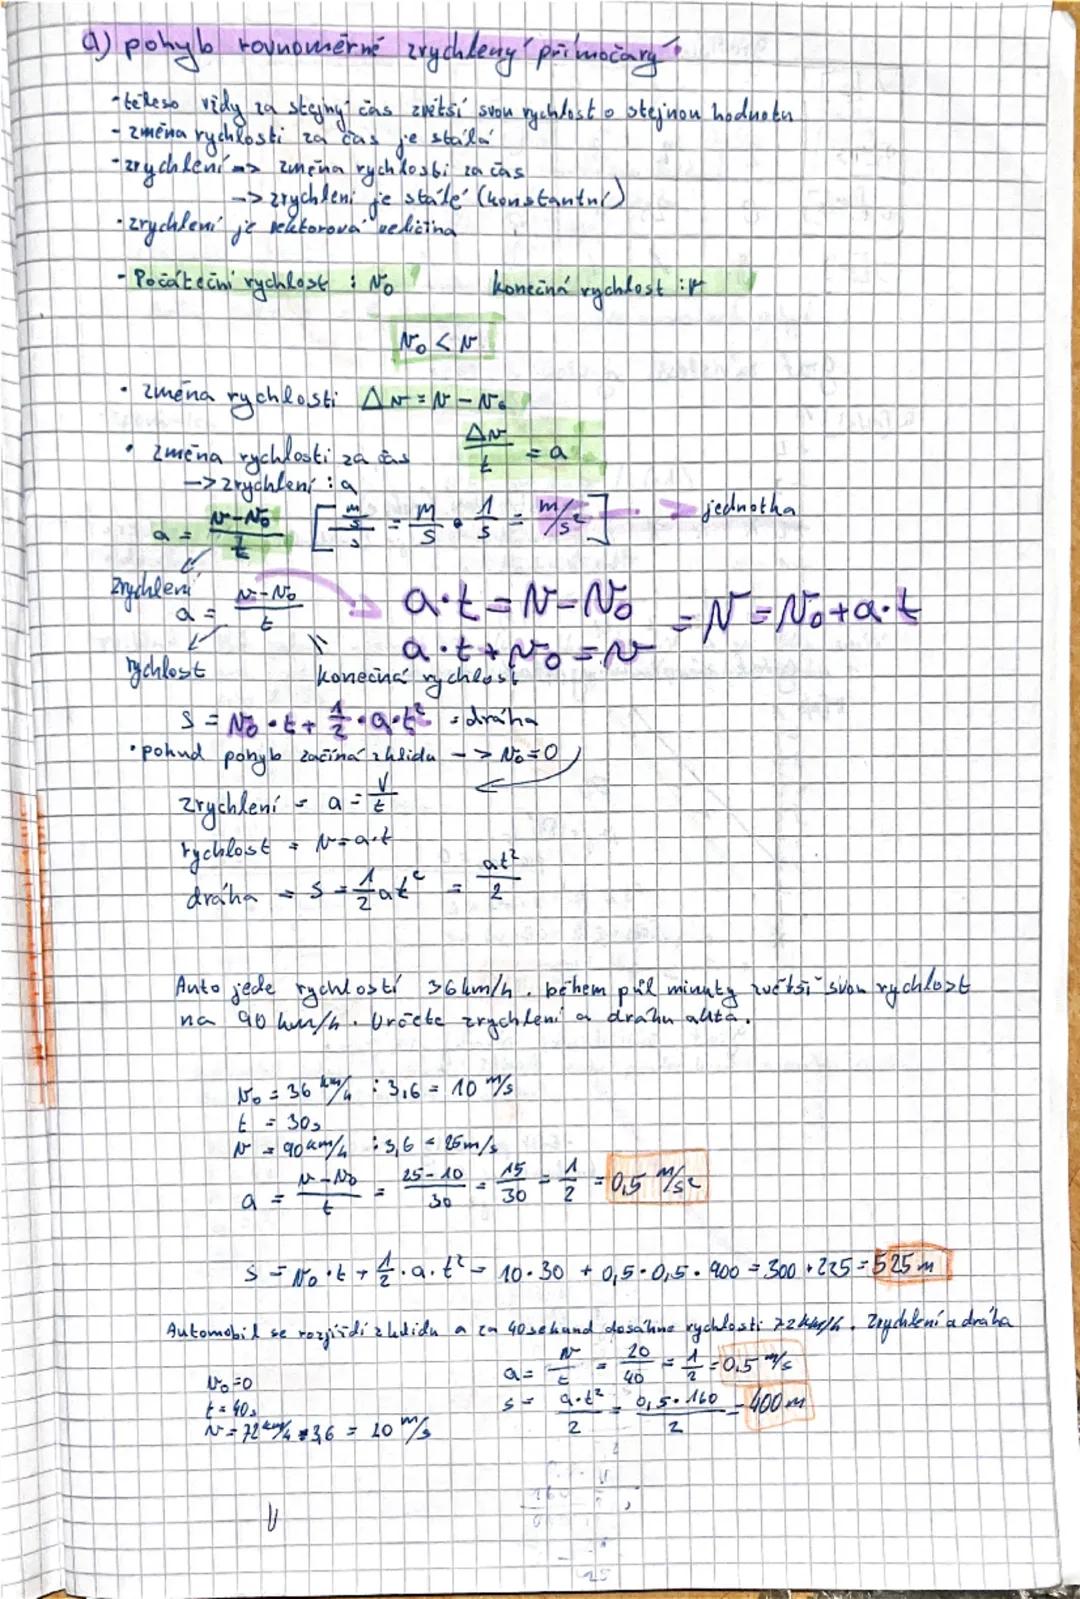 a) pohyb rovnoměrně zrychlený přímočarý
- těleso vždy za stejný čas zvětší svou rychlost o stejnou hodnotu
- změna rychlosti za čas je stálá
- zrychlení => změna rychlosti za čas
-> zrychlení je stálé (konstantní)
- zrychlení je vektorová veličina
- Počáteční rychlost : v₀ konečná rychlost : v
v₀ < v
• změna rychlosti Δv = v - v₀
• změna rychlosti za čas Δv/t = a
-> zrychlení : a
a = (v-v₀)/t [(m/s)/s = m/s • 1/s = m/s²] -> jednotka
zrychlení
a = (v-v₀)/t a·t = v-v₀ = v = v₀+a·t
a·t+v₀ = v
rychlost konečná rychlost
s = v₀·t + 1/2·a·t² = dráha
• pokud pohyb začíná z klidu -> v₀=0
zrychlení = a = v/t
rychlost = v=a·t
dráha = s = 1/2 at² = at²/2
Auto jede rychlostí 36km/h. během půl minuty zvětší svou rychlost
na 90 km/h. Určete zrychlení a dráhu auta.
v₀ = 36 km/h : 3,6 = 10 m/s
t = 30s
v = 90km/h : 3,6 = 25m/s
a = (v-v₀)/t = (25-10)/30 = 15/30 = 1/2 = 0,5 m/s²
s = v₀·t + 1/2·a·t² = 10·30 + 0,5·0,5·900 = 300+225 = 525 m
Automobil se rozjíždí z klidu a za 40 sekund dosáhne rychlosti 72km/h. Zrychlení a dráha
a = v/t = 20/40 = 1/2 = 0,5 m/s
v₀=0
t = 40s s = a·t²/2 = 0,5·160/2 = 400 m
v = 72 km/h : 3,6 = 20 m/s